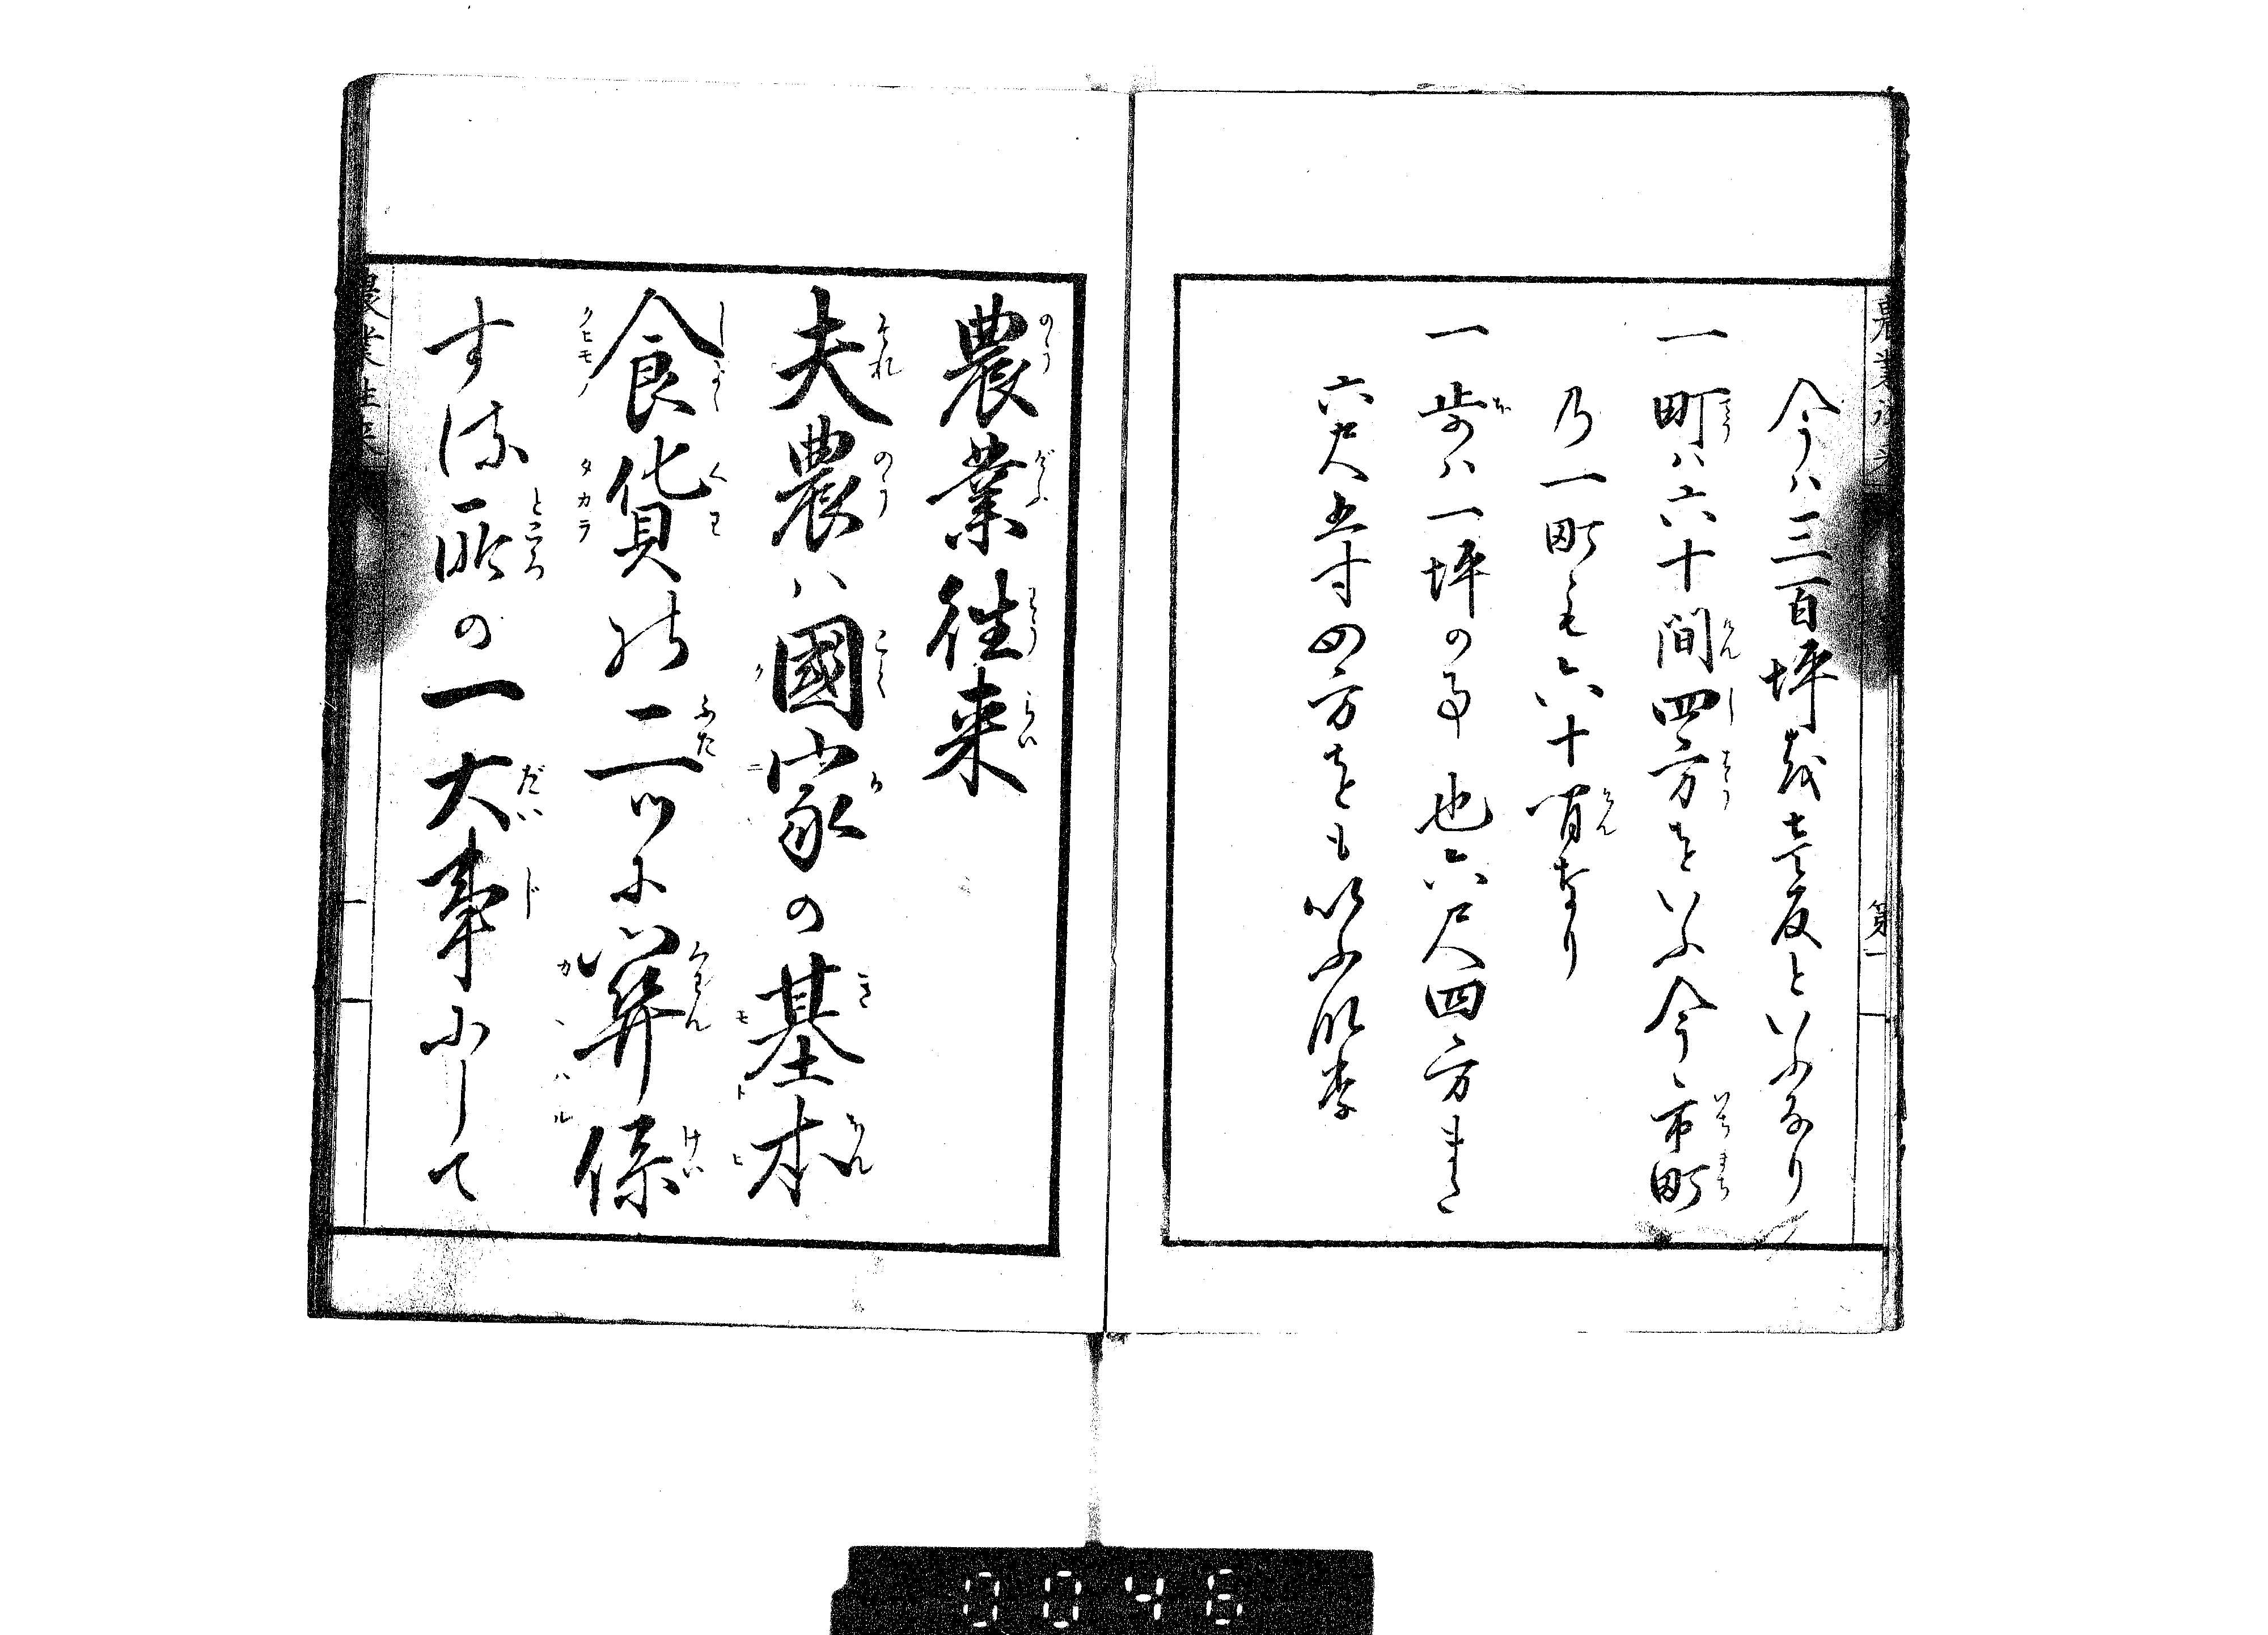 今ハ三百坪を壱反といふなり
一町ハ六十間四方をいふ今市町
乃一町も六十間なり
一歩ハ一坪の事也六尺四方また
六尺五寸四方をも
農業往来
夫農ハ國家の基本
食貨の二ツに関係
する所の一大事にして
農業往来
第一
0046